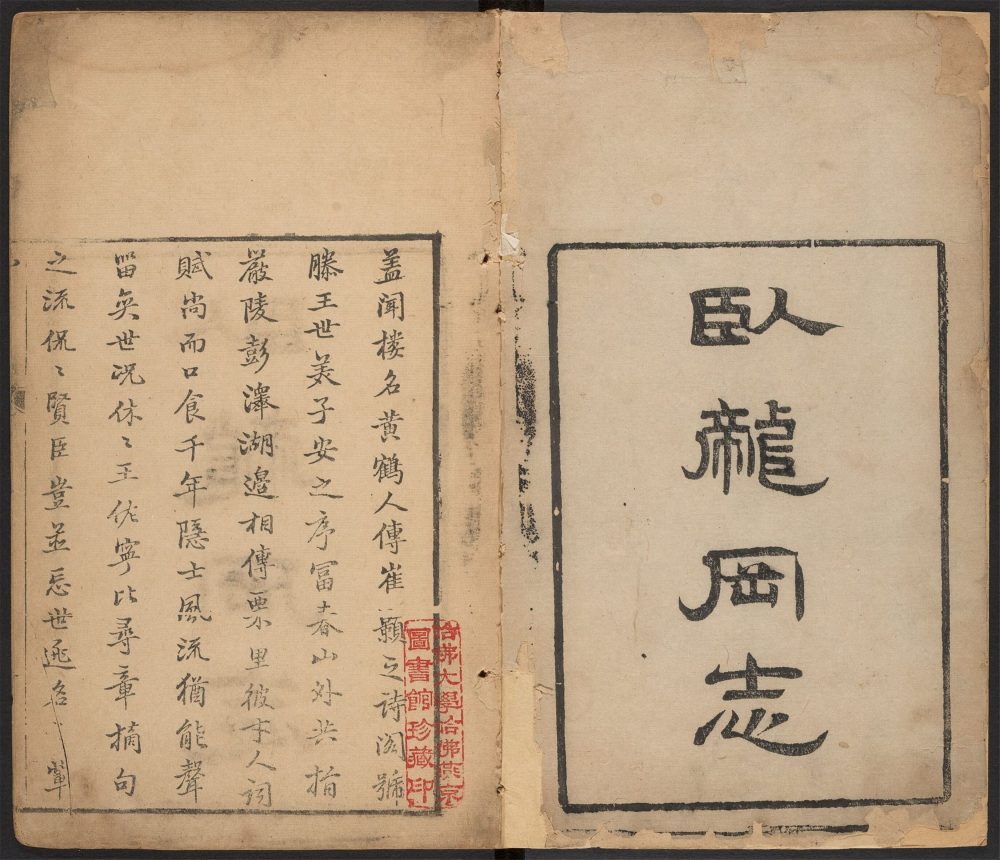 臥龍岡志
盖聞楼名黄鶴人傳崔顥之詩阁號
滕王世羡子安之序冨春山外共指
嚴陵彭澤湖邉相傳栗里彼才人詞
賦尚而口食千年隱士風流猶能聲
畱奕世况休〻王佐寧比尋章摘句
之流侃〻賢臣豈並忘世逃名之輩
哈佛大學哈佛燕京
圖書館珍藏印